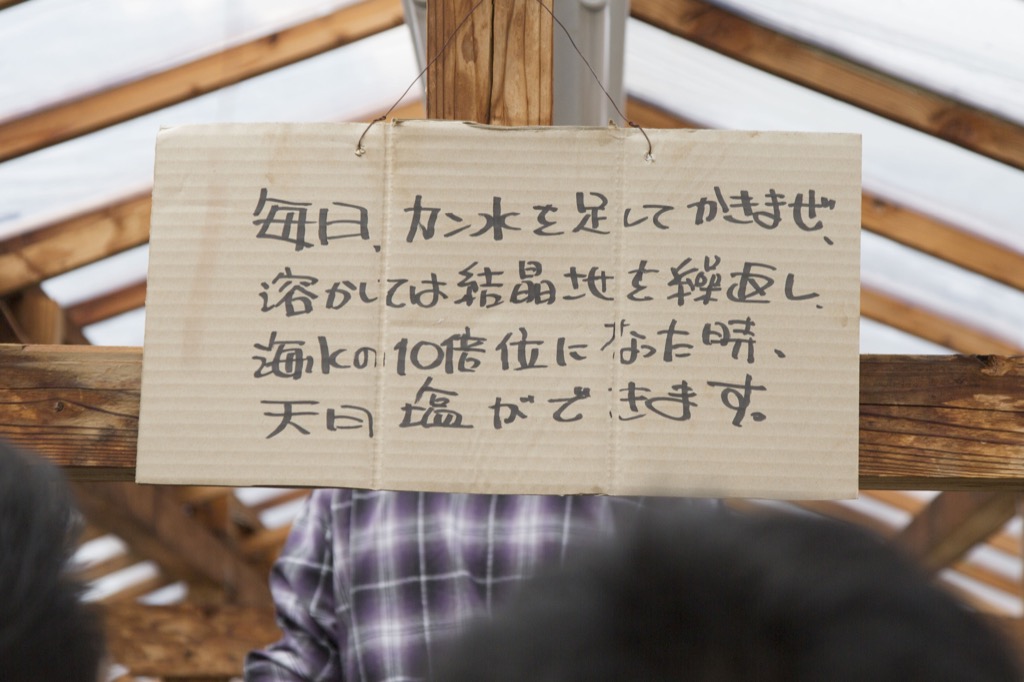 毎日、カン水を足してかきまぜ、
溶かしては結晶地を繰返し、
海水の10倍位になった時、
天日塩ができます。